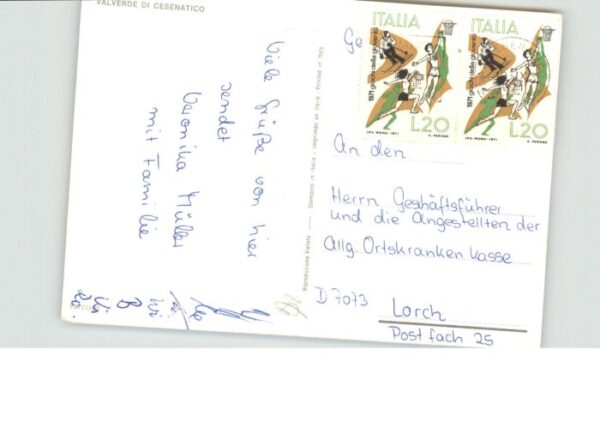 VALVERDE DI CESENATICO
Viele Grüße von hier
sendet
Veronika Müller
mit Familie
Riproduzione Vietata
Stampato in Italia - Imprimée en Italie - Printed in Italy
ITALIA
1971 giochi della gioventù
L20
I.P.S.-ROMA-1971
E. PERONE
ITALIA
1971 giochi della gioventù
L20
I.P.S.-ROMA-1971
E. PERONE
An den
Herrn Geschäftsführer
und die Angestellten der
Allg. Ortskrankenkasse
D 7073 Lorch
Postfach 25